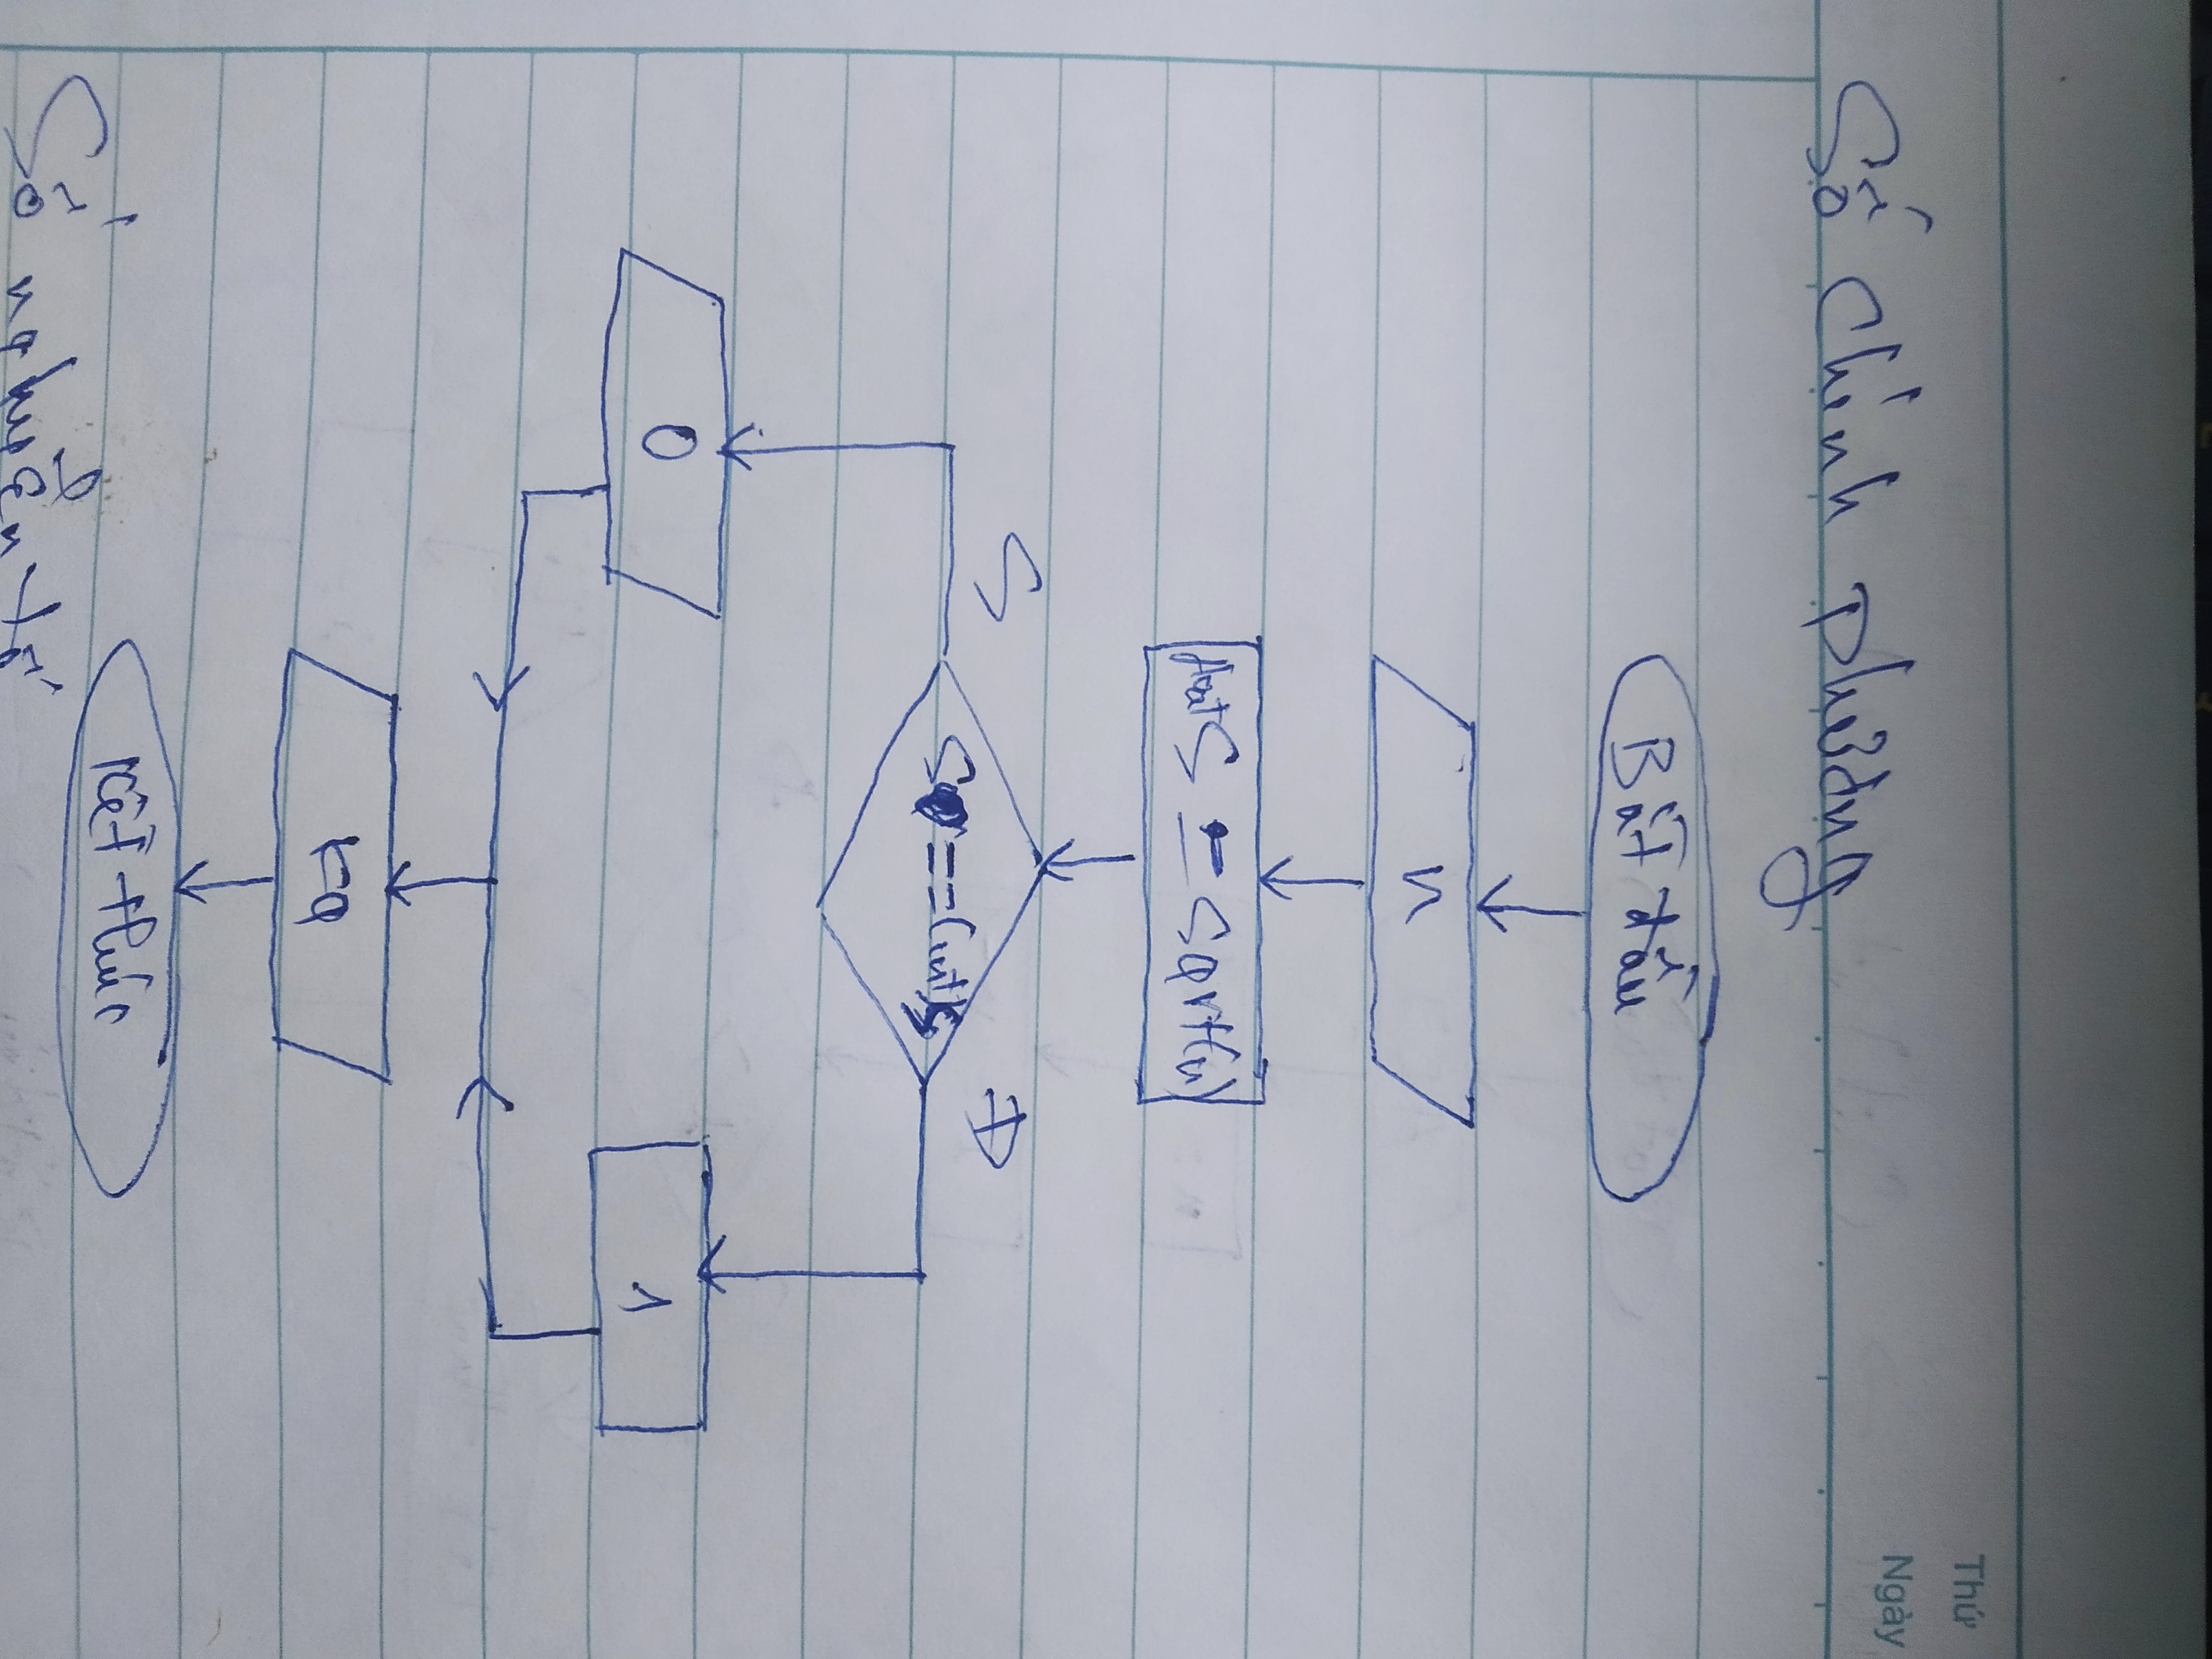 Thứ
Ngày
Số chính phương
Bắt đầu
n
float S = sqrt(n)
S == (int)S
S
Đ
0
1
kq
Kết thúc
Số nguyên tố